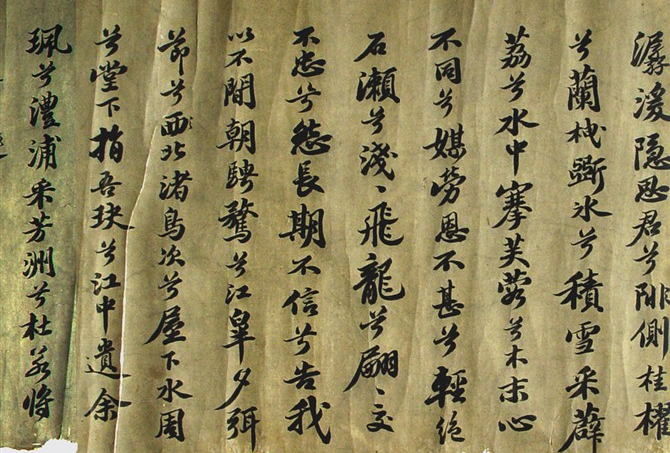 潺湲隱思君兮陫側桂櫂
兮蘭枻斲冰兮積雪采薜
荔兮水中搴芙蓉兮木末心
不同兮媒勞恩不甚兮輕絕
石瀨兮淺〻飛龍兮翩〻交
不忠兮怨長期不信兮告我
以不閒朝騁騖兮江皋夕弭
節兮西北渚鳥次兮屋下水周
兮堂下捐吾玦兮江中遺余
珮兮澧浦采芳洲兮杜若將